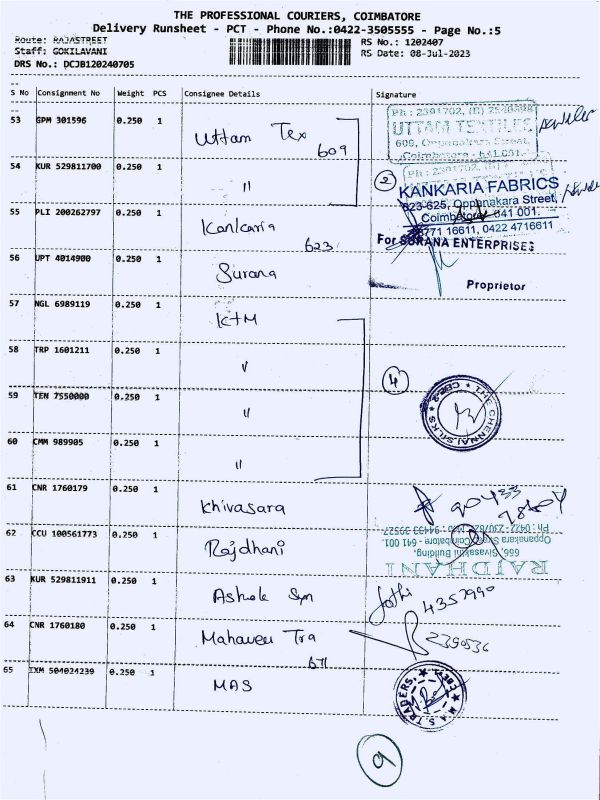 THE PROFESSIONAL COURIERS, COIMBATORE
Delivery Runsheet - PCT - Phone No.:0422-3505555 - Page No.:5
Route: RAJASTREET
RS No.: 1202407
Staff: GOKILAVANI
RS Date: 08-Jul-2023
DRS No.: DCJB120240705
S No Consignment No Weight PCS Consignee Details Signature
53 GPM 301596 0.250 1 Uttam Tex 609
Ph : 2391702, (R)
UTTAM TEXTILES
609, Oppanakara Street,
Coimbatore - 641 001.
54 KUR 529811700 0.250 1 "
Ph : 2391702, (R)
2
KANKARIA FABRICS
623-625, Oppanakara Street,
Coimbatore 641 001.
98771 16611, 0422 4716611
55 PLI 200262797 0.250 1 Kankaria 623
For SURANA ENTERPRISES
Proprietor
56 UPT 4014900 0.250 1 Surana
57 NGL 6989119 0.250 1 KTM
58 TRP 1601211 0.250 1 "
4
59 TEN 7550000 0.250 1 "
THE CHENNAI SILKS
CBE-2
60 CMM 989905 0.250 1 "
61 CNR 1760179 0.250 1 Khivasara
90433
62 CCU 100561773 0.250 1 Rajdhani
RAJDHANI
666, Sivasakthi Building,
Oppanakara Street, Coimbatore - 641 001.
63 KUR 529811911 0.250 1 Ashok Syn
Jothi 4357990
64 CNR 1760180 0.250 1 Mahaveer Tra 671
2390536
65 IXM 504024239 0.250 1 MAS
M.A.S. TRADERS,
9